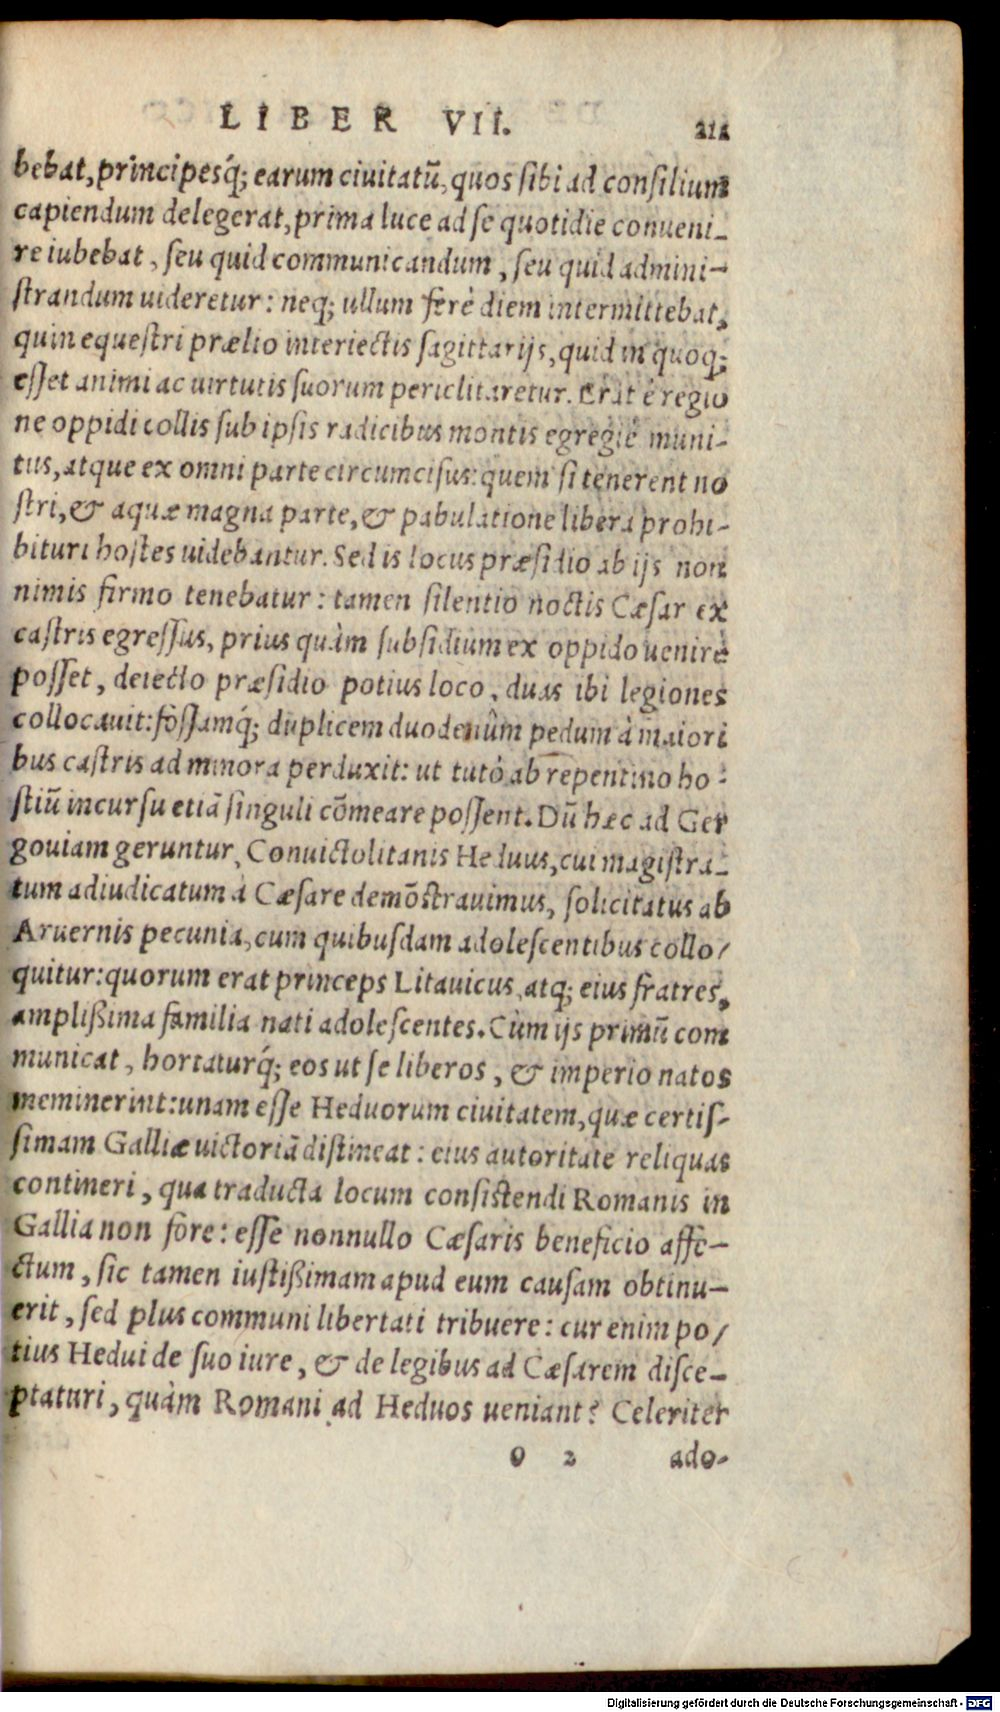 LIBER VII. 212
bebat, principesq́; earum ciuitatũ, quos sibi ad consilium
capiendum delegerat, prima luce ad se quotidie conueni-
re iubebat, seu quid communicandum, seu quid admini-
strandum uideretur: neq; ullum ferè diem intermittebat,
quin equestri prælio interiectis sagittarijs, quid in quoq;
esset animi ac uirtutis suorum periclitaretur. Erat è regio
ne oppidi collis sub ipsis radicibus montis egregiè muni-
tus, atque ex omni parte circumcisus: quem si tenerent no
stri, & aquæ magna parte, & pabulatione libera prohi-
bituri hostes uidebantur. Sed is locus præsidio ab ijs non
nimis firmo tenebatur: tamen silentio noctis Cæsar ex
castris egressus, prius quàm subsidium ex oppido uenire
posset, deiecto præsidio potius loco, duas ibi legiones
collocauit: fossamq́; duplicem duodenûm pedum à maiori
bus castris ad minora perduxit: ut tutò ab repentino ho-
stiũ incursu etiã singuli cõmeare possent. Dũ hæc ad Ger
gouiam geruntur, Conuictolitanis Heduus, cui magistra-
tum adiudicatum à Cæsare demõstrauimus, solicitatus ab
Aruernis pecunia, cum quibusdam adolescentibus collo/
quitur: quorum erat princeps Litauicus, atq; eius fratres,
amplißima familia nati adolescentes. Cùm ijs primũ com
municat, hortaturq́; eos ut se liberos, & imperio natos
meminerint: unam esse Heduorum ciuitatem, quæ certis-
simam Galliæ uictoriã distineat: eius autoritate reliquas
contineri, qua traducta locum consistendi Romanis in
Gallia non fore: esse nonnullo Cæsaris beneficio affe-
ctum, sic tamen iustißimam apud eum causam obtinu-
erit, sed plus communi libertati tribuere: cur enim po/
tius Hedui de suo iure, & de legibus ad Cæsarem disce-
ptaturi, quàm Romani ad Heduos ueniant? Celeriter
O 2 ado-
Digitalisierung gefördert durch die Deutsche Forschungsgemeinschaft - DFG